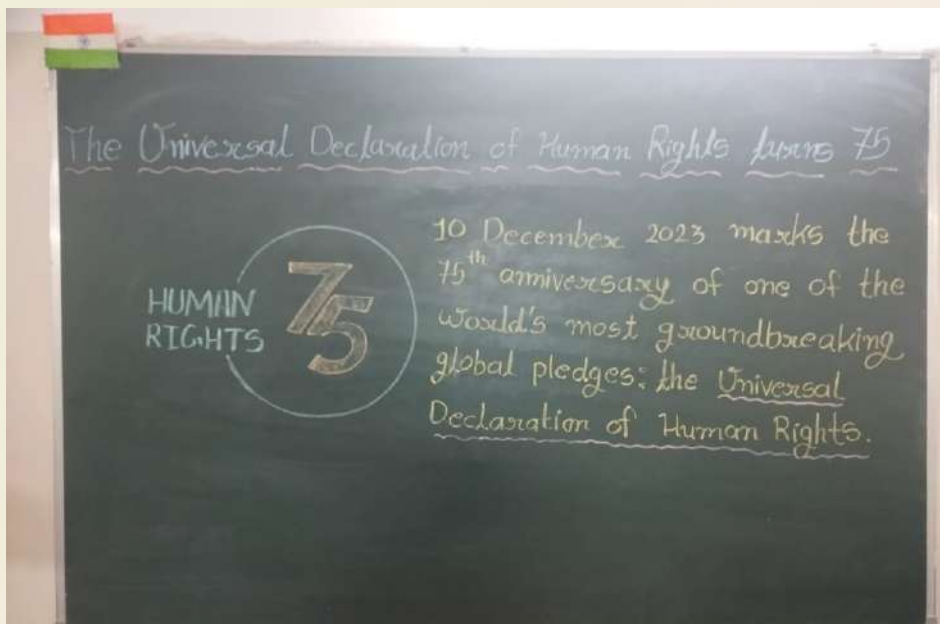 The Universal Declaration of Human Rights turns 75
HUMAN
RIGHTS
75
10 December 2023 marks the
75th anniversary of one of the
world's most groundbreaking
global pledges: the Universal
Declaration of Human Rights.